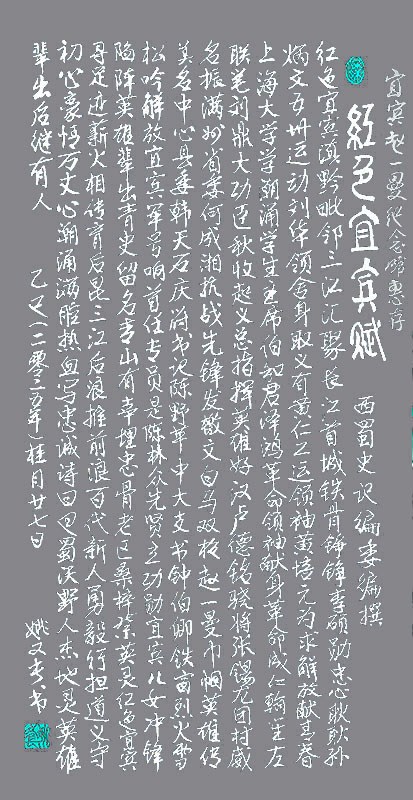 宜宾赵一曼纪念馆惠存
红色宜宾赋
西蜀史记编委编撰
红色宜宾滇黔毗邻三江汇聚长江首城铁骨铮锋李硕勋忠心耿耿孙
炳文五卅运动刘华领舍身取义有黄仁工运领袖黄培元为求解放献青春
上海大学学潮涌学生主席伯知君泽鸿革命领袖献身革命成仁翰笙左
联笔利鼎大功臣秋收起义总指挥英雄好汉卢德铭骁将张锡龙团村威
名振满州省委何成湘抗战先锋发檄文白马双枪赵一曼巾帼英雄传
美名中心县委韩天石庆府书记陈野苹中大支书钟伯卿铁窗烈火雪
松吟解放宜宾军号响首任专员是陈林众先贤立功勋宜宾儿女冲锋
陷阵英雄辈出青史留名青山有幸埋忠骨老区桑梓祭英灵红色宜宾
寻足迹薪火相传育后昆三江后浪推前浪百代新人勇毅行担道义守
初心豪情万丈心潮涌满腔热血写忠诚诗曰蜀沃野人杰地灵英雄
辈出后继有人 乙巳(二零二五年)桂月廿七日
姚文书